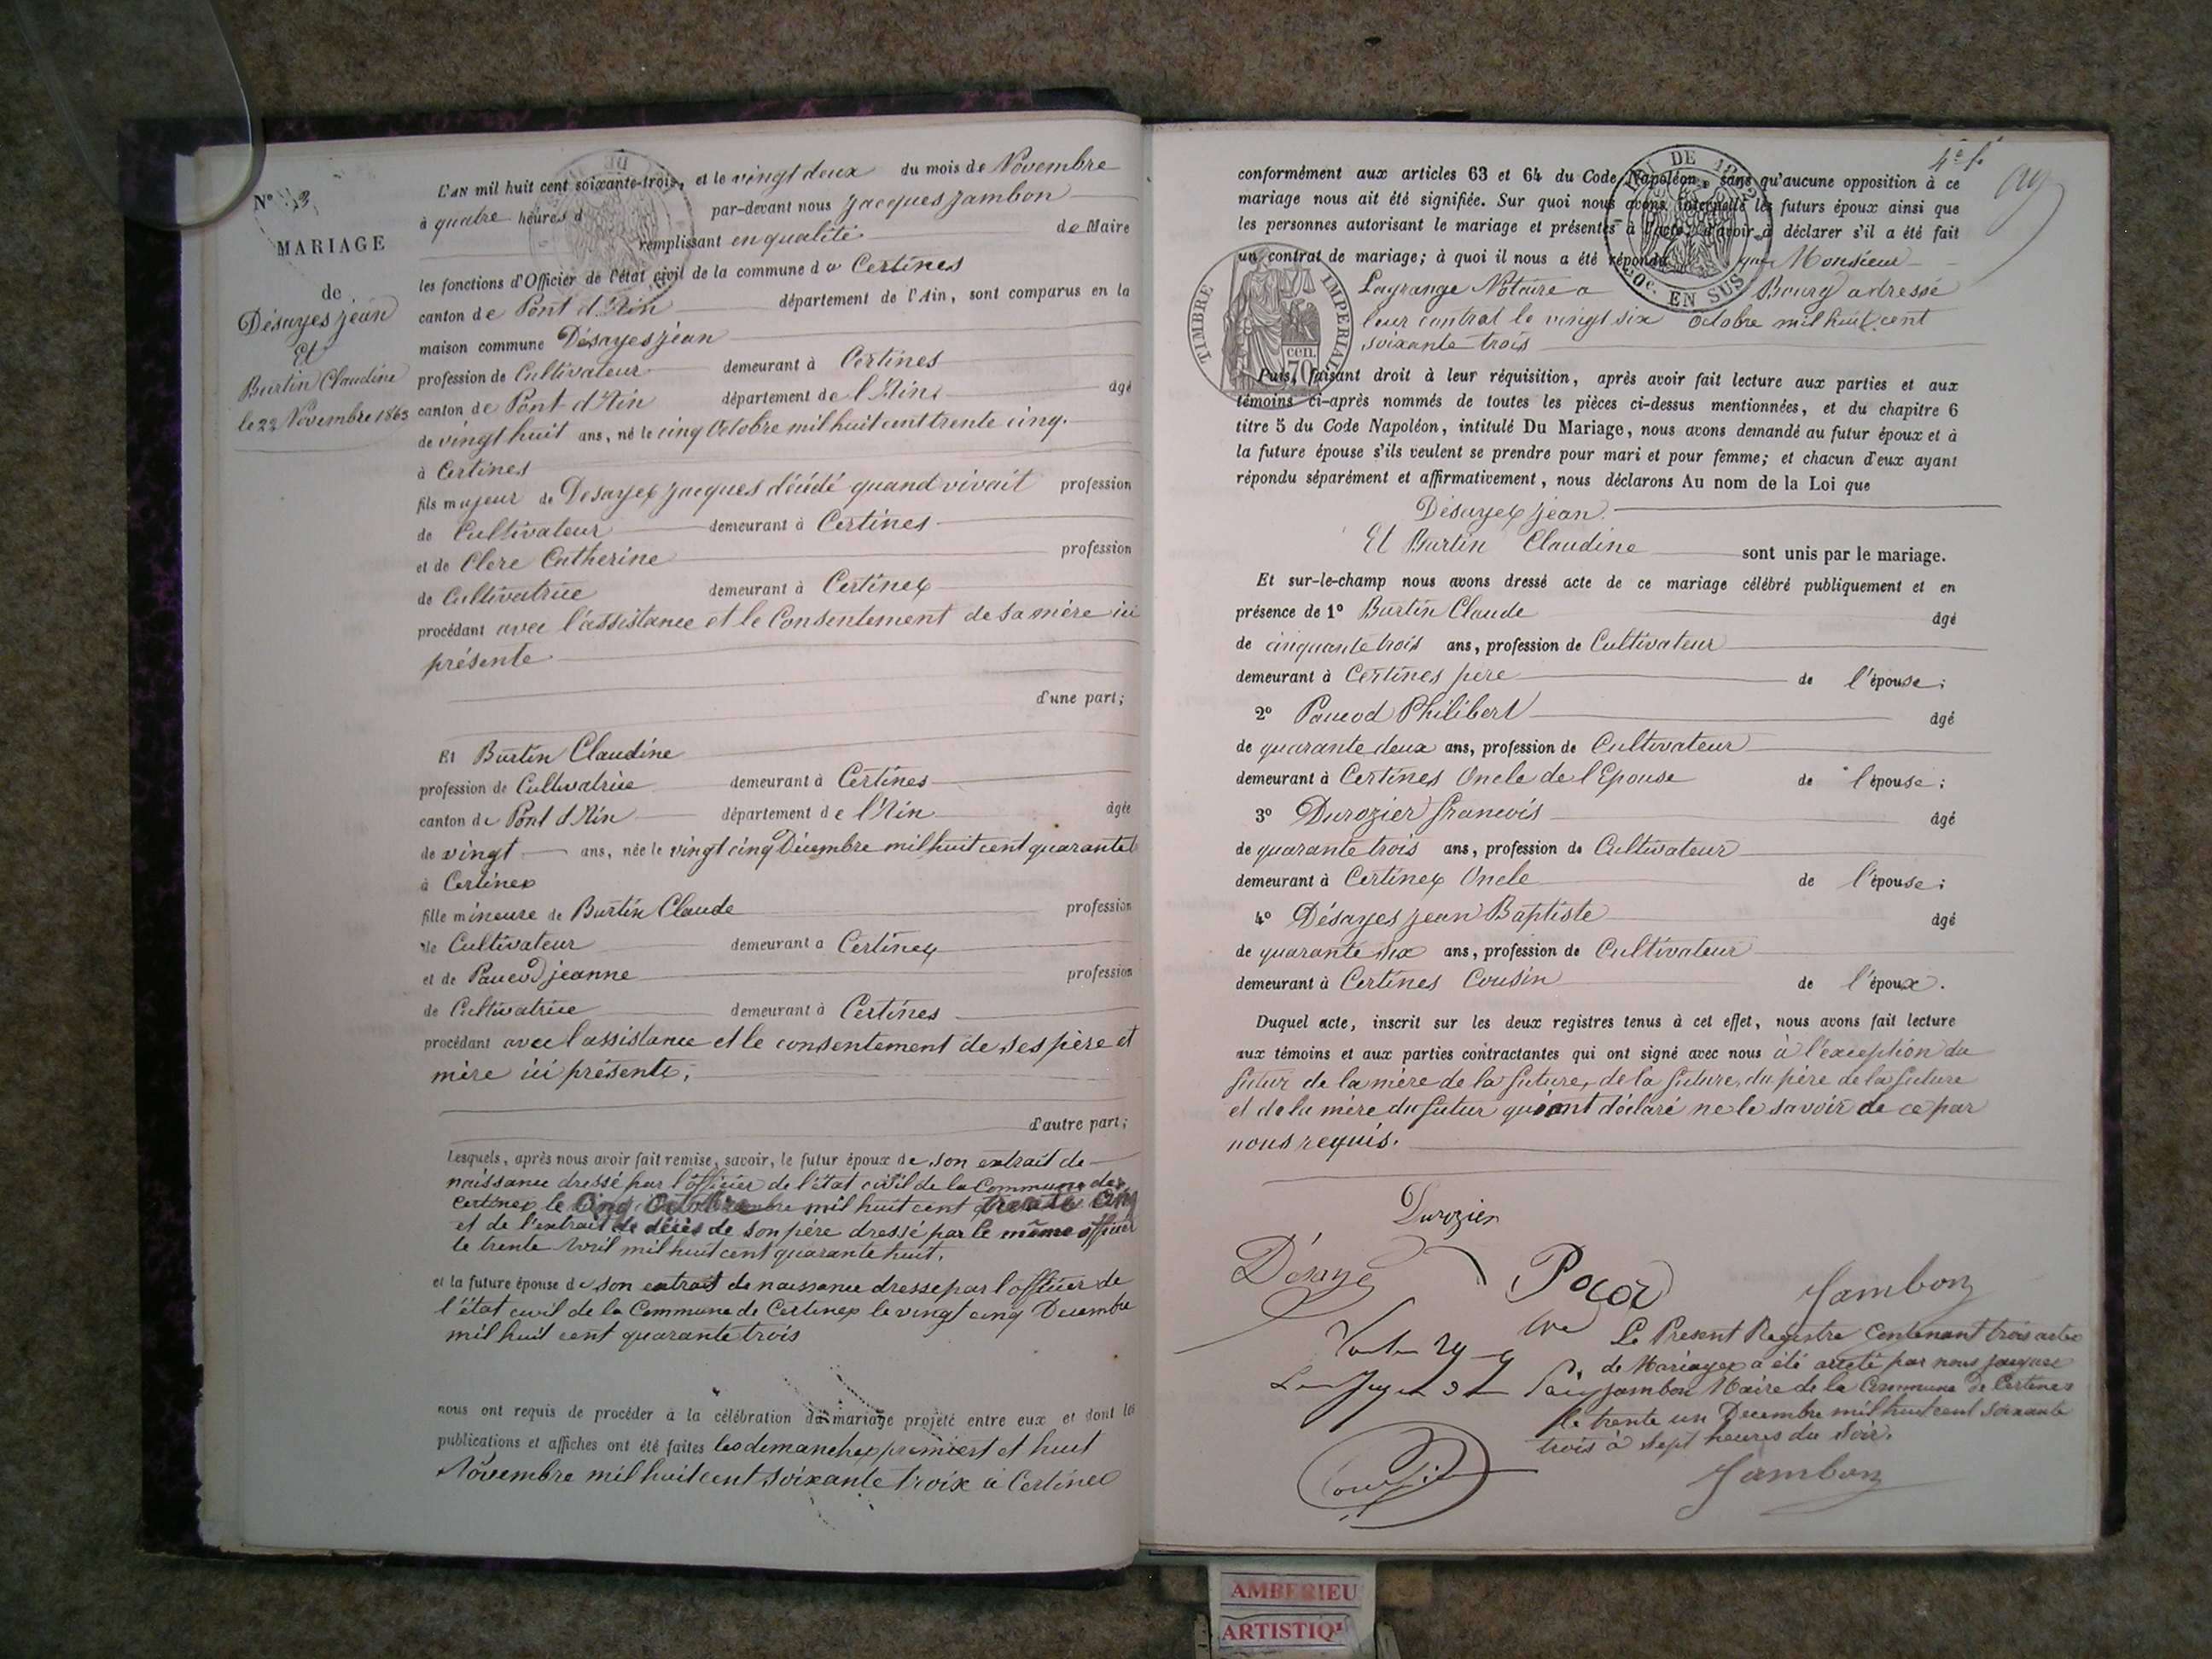 N° 3
MARIAGE
de
Désayes jean
Et
Burtin Claudine
le 22 Novembre 1863
L'AN mil huit cent soixante-trois, et le vingt deux du mois de Novembre
à quatre heures d par-devant nous jacques jambon
remplissant en qualité de Maire
les fonctions d'Officier de l'état civil de la commune de Certines
canton de Pont d'Ain département de l'Ain, sont comparus en la
maison commune Désayes jean
profession de Cultivateur demeurant à Certines
canton de Pont d'Ain département de l'Ain âgé
de vingt huit ans, né le cinq Octobre mil huit cent trente cinq.
à Certines
fils majeur de Desayes jacques décédé quand vivait profession
de Cultivateur demeurant à Certines
et de Clere Catherine profession
de Cultivatrice demeurant à Certines
procédant avec l'assistance et le Consentement de sa mère ici
présente
d'une part;
Et Burtin Claudine
profession de Cultivatrice demeurant à Certines
canton de Pont d'Ain département de l'Ain âgée
de vingt ans, née le vingt cinq Décembre mil huit cent quarante
à Certines
fille mineure de Burtin Claude profession
de Cultivateur demeurant à Certines
et de Paucod jeanne profession
de Cultivatrice demeurant à Certines
procédant avec l'assistance et le consentement de ses père et
mère ici présents,
d'autre part;
Lesquels, après nous avoir fait remise, savoir, le futur époux de son extrait de
naissance dressé par l'officier de l'état civil de la Commune de
Certines le cinq Octobre mil huit cent trente cinq
et de l'extrait de décès de son père dressé par le même officier
le trente Avril mil huit cent quarante huit,
et la future épouse de son extrait de naissance dresse par l'officier de
l'état civil de la Commune de Certines le vingt cinq Decembre
mil huit cent quarante trois
nous ont requis de procéder à la célébration du mariage projeté entre eux et dont les
publications et affiches ont été faites les dimanches premier et huit
Novembre mil huit cent soixante trois à Certines
4e f.
conformément aux articles 63 et 64 du Code Napoléon, sans qu'aucune opposition à ce
mariage nous ait été signifiée. Sur quoi nous avons interpellé les futurs époux ainsi que
les personnes autorisant le mariage et présentes à l'acte, d'avoir à déclarer s'il a été fait
un contrat de mariage; à quoi il nous a été répondu que Monsieur
Lagrange Notaire a Bourg a dressé
leur contrat le vingt six Octobre mil huit cent
soixante trois
TIMBRE IMPERIAL
70 cen.
10c. EN SUS
Puis, faisant droit à leur réquisition, après avoir fait lecture aux parties et aux
témoins ci-après nommés de toutes les pièces ci-dessus mentionnées, et du chapitre 6
titre 5 du Code Napoléon, intitulé Du Mariage, nous avons demandé au futur époux et à
la future épouse s'ils veulent se prendre pour mari et pour femme; et chacun d'eux ayant
répondu séparément et affirmativement, nous déclarons Au nom de la Loi que
Désayes jean
Et Burtin Claudine sont unis par le mariage.
Et sur-le-champ nous avons dressé acte de ce mariage célébré publiquement et en
présence de 1° Burtin Claude âgé
de cinquante trois ans, profession de Cultivateur
demeurant à Certines pere de l'épouse;
2° Paucod Philibert âgé
de quarante deux ans, profession de Cultivateur
demeurant à Certines Oncle de l'Epouse de l'épouse;
3° Durozier francois âgé
de quarante trois ans, profession de Cultivateur
demeurant à Certines Oncle de l'épouse;
4° Désayes jean Baptiste âgé
de quarante six ans, profession de Cultivateur
demeurant à Certines Cousin de l'époux.
Duquel acte, inscrit sur les deux registres tenus à cet effet, nous avons fait lecture
aux témoins et aux parties contractantes qui ont signé avec nous à l'exception du
futur de la mère de la future, de la future, du père de la future
et de la mère du futur qui ont déclaré ne le savoir de ce par
nous requis.
Durozier
Désayes
Pocod
Jambon
Le Present Registre Contenant trois actes
de Mariages a été arreté par nous jacques
jambon Maire de la Commune de Certines
le trente un Decembre mil huit cent soixante
trois à sept heures du soir.
Jambon
AMBERIEU
ARTISTIQ